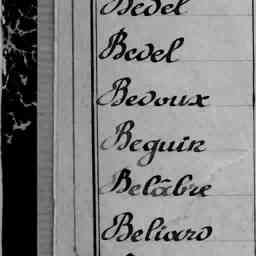 Bedel
Bedel
Bedoux
Beguin
Belâbre
Beliard